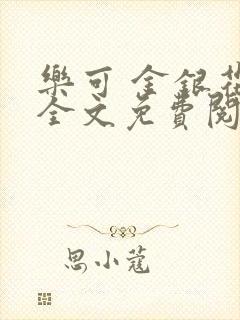 樂可 金銀花
全文免費閱
思小蔻